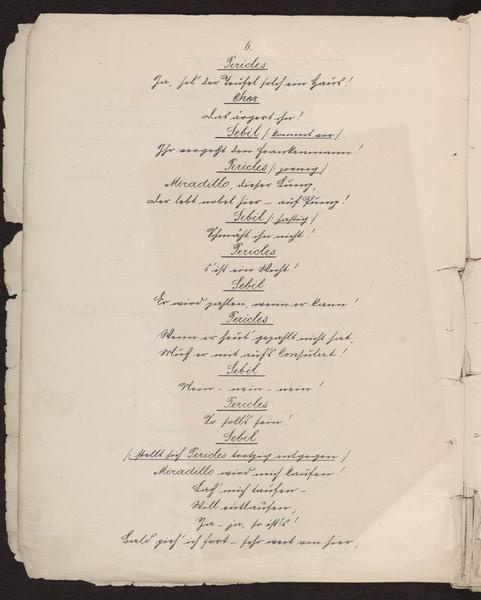 6.
Pericles
Ja, hol' der Teufel solch ein Haus!
Chor
Das ärgert ihn!
Sebil /: kommt vor /
Ihr vergeßt den Frankenmann!
Pericles /: zornig /
Miradillo, dieser Lump,
Der lebt nobel hier – auf Pump!
Sebil /: hastig /
Schmäht ihn nicht!
Pericles
s'ist ein Wicht!
Sebil
Er wird zahlen, wenn er kann!
Pericles
Wenn er heut' gezahlt nicht hat,
Muß er mit auf's Consulat!
Sebil
Nein – nein – nein!
Pericles
So soll's sein!
Sebil
/: stellt sich Pericles trotzig entgegen /
Miradillo wird mich kaufen!
Laß' mich taufen –
Will entlaufen,
Ja – ja, so ist's!
Bald zieh' ich fort – sehr weit von hier,